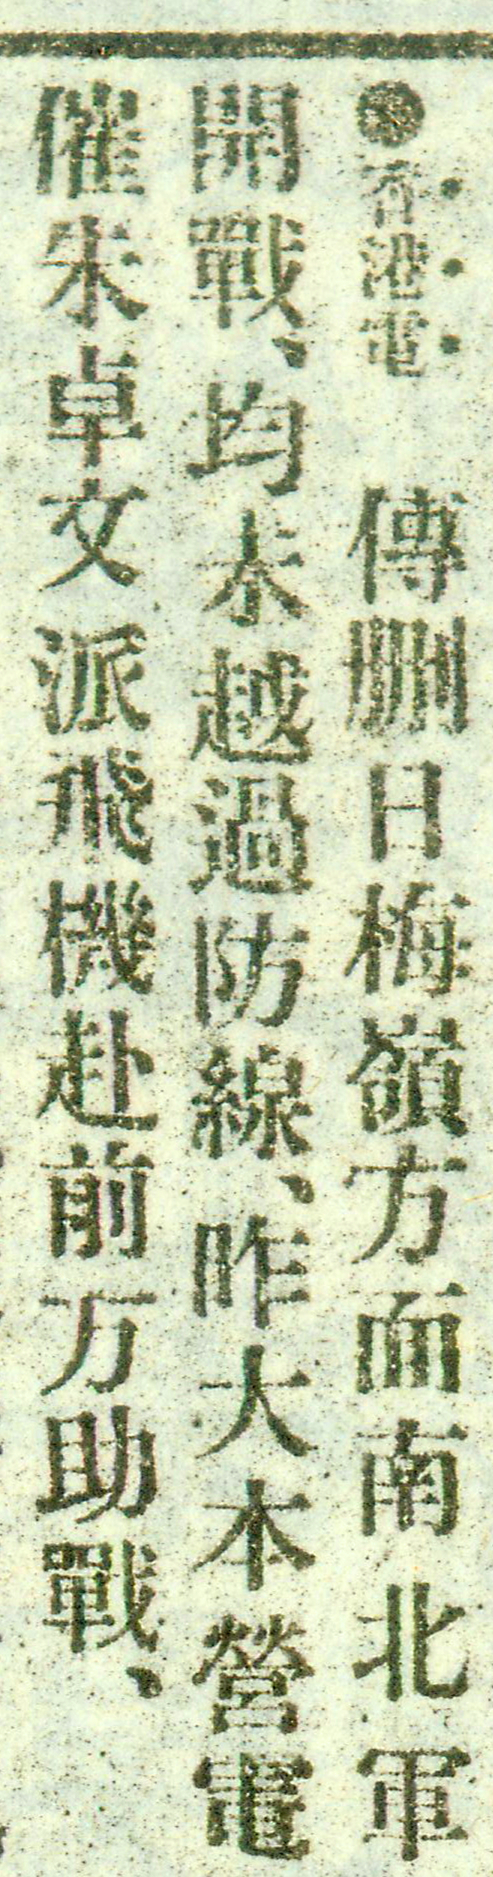 ●香港電　傳删日梅嶺方面南北軍
開戰、均未越過防線、昨大本營電
催朱卓文派飛機赴前方助戰、